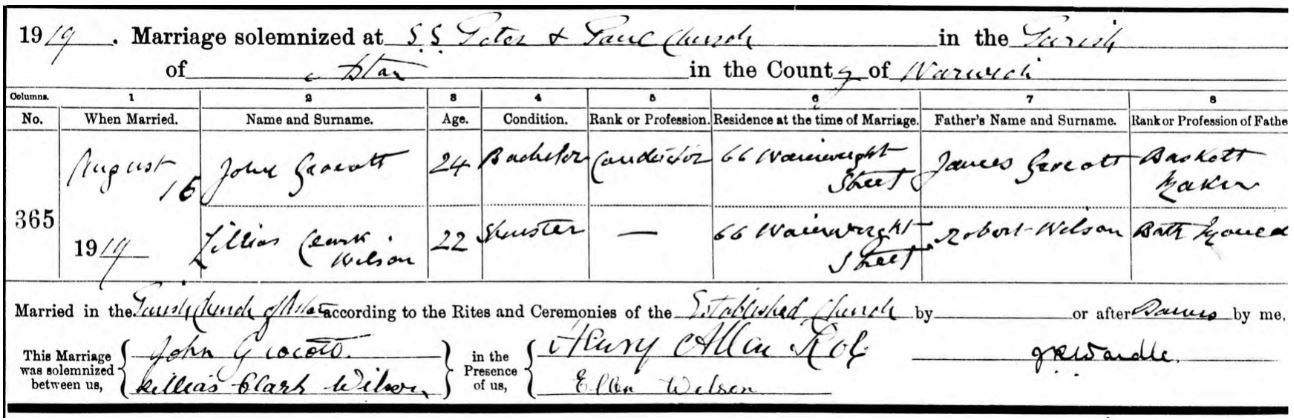 1919. Marriage solemnized at S.S. Peter & Paul Church in the Parish
of Aston in the County of Warwick
Columns. 1 2 3 4 5 6 7 8
No. When Married. Name and Surname. Age. Condition. Rank or Profession. Residence at the time of Marriage. Father's Name and Surname. Rank or Profession of Fathe
August John Grocott 24 Bachelor Conductor 66 Wainwright James Grocott Baskett
16 Street Maker
365
1919 Lillias Clark 22 Spinster — 66 Wainwright Robert Wilson Bath
Wilson Street
Married in the Parish Church of Aston according to the Rites and Ceremonies of the Established Church by or after Banns by me,
This Marriage was solemnized between us, John Grocott. in the Presence of us, Henry Allen
Lillias Clark Wilson Ellen Wilson